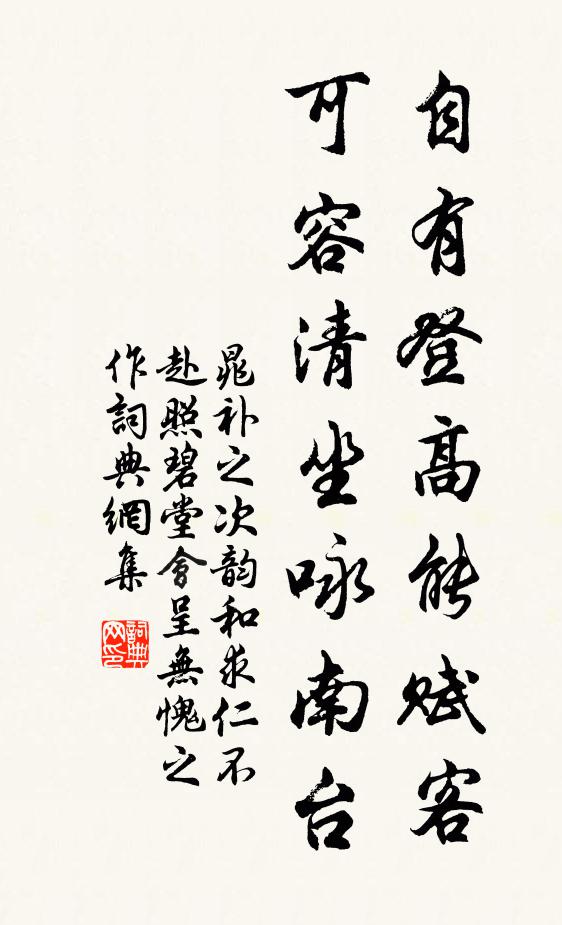 自有登高能賦客
可容清坐咏南台
晁补之次韵和求仁不
赴照碧堂會呈無愧之
作詞典網集
詞典网印